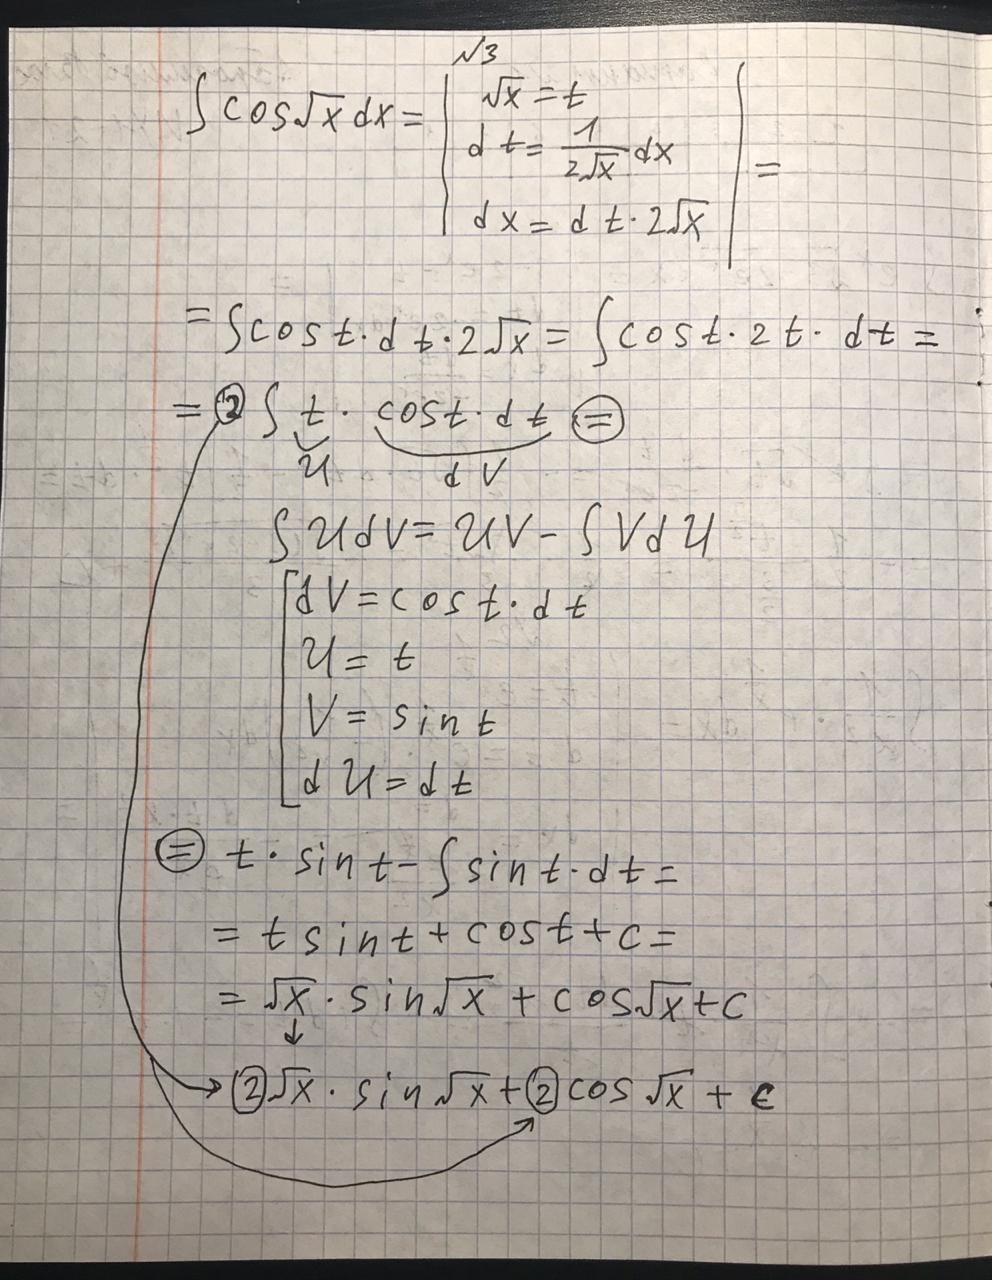 √3
∫ cos√x dx = | √x = t
dt = 1/(2√x) dx
dx = dt · 2√x | =
= ∫cos t · dt · 2√x = ∫ cos t · 2t · dt =
= ② ∫ t · cos t · dt ⊜
u dV
∫ u dV = uV - ∫ V du
[ dV = cos t · dt
u = t
V = sin t
du = dt
⊜ t · sin t - ∫ sin t · dt =
= t sin t + cos t + c =
= √x · sin√x + cos√x + c
↓
→ ②√x · sin√x + ② cos √x + c